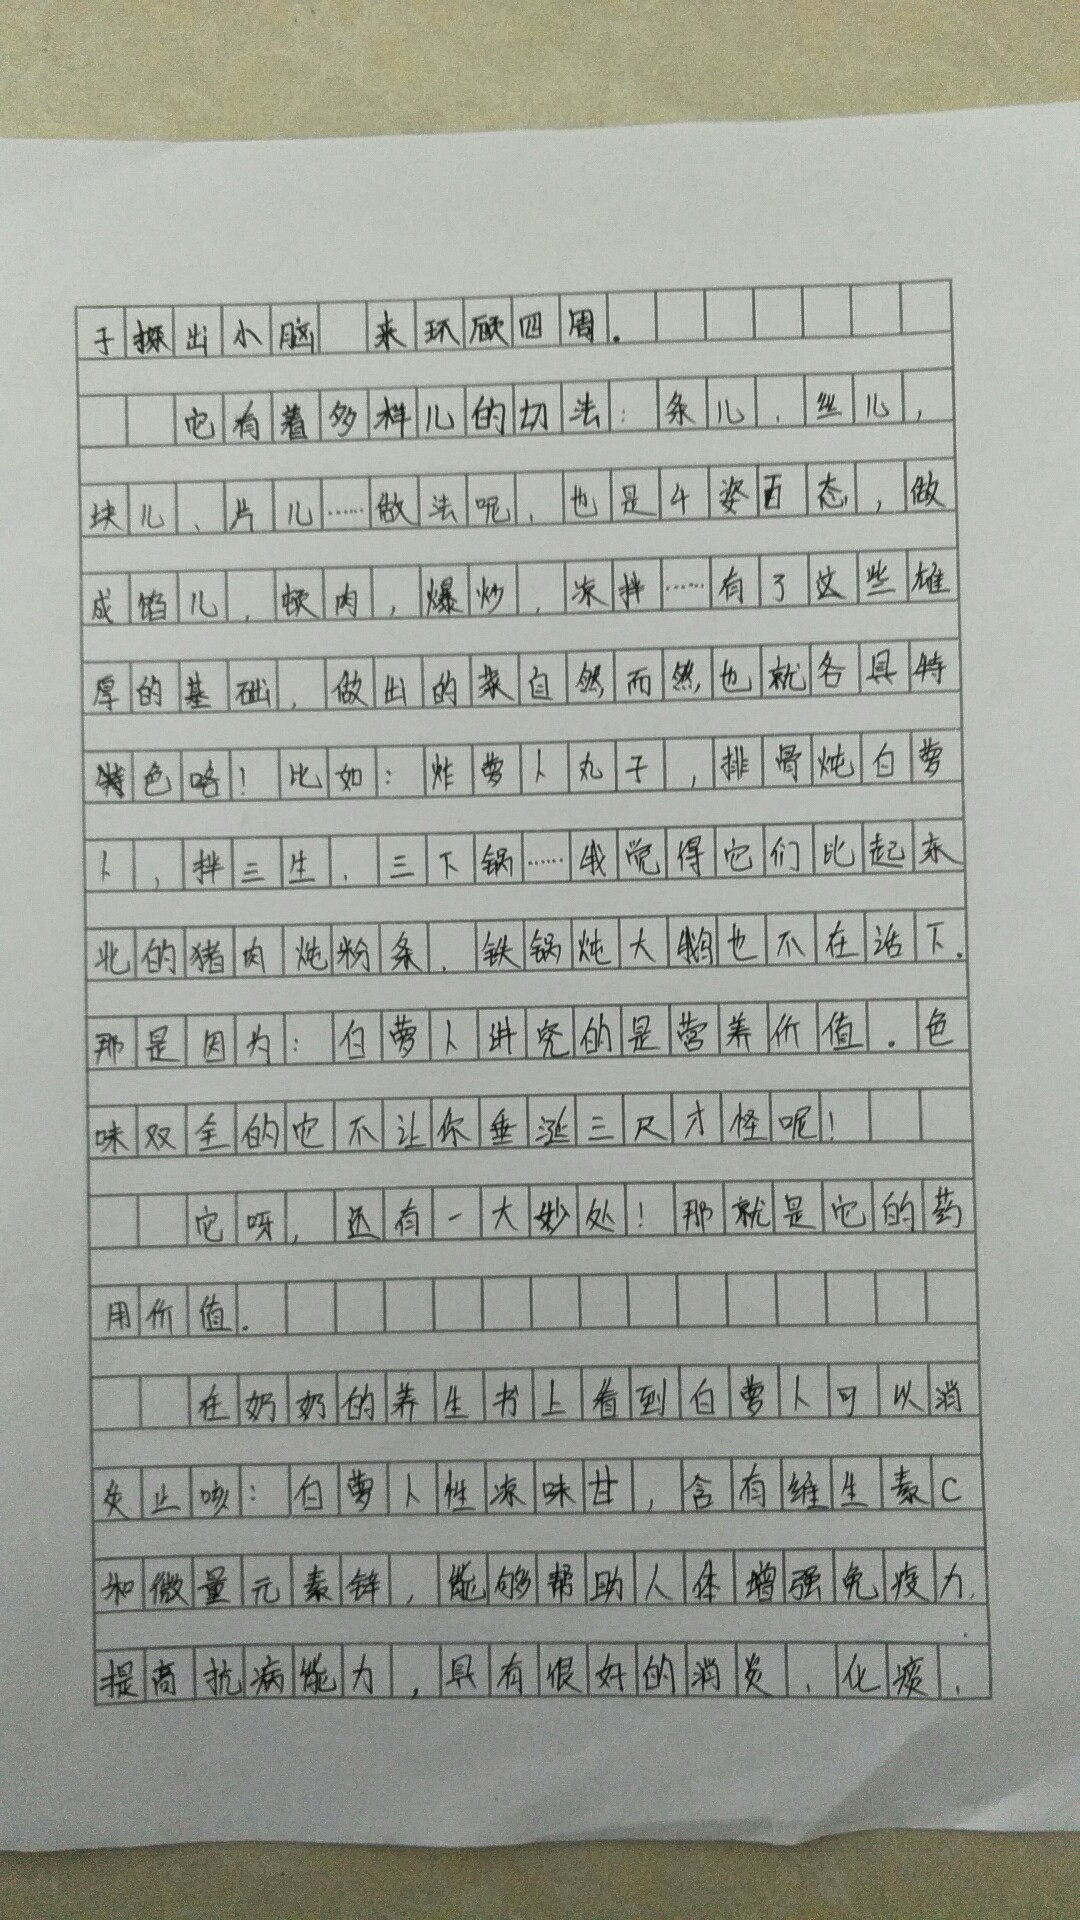 子探出小脑 来环顾四周。
它有着多样儿的切法：条儿、丝儿，
块儿、片儿……做法呢，也是千姿百态，做
成馅儿，顿肉，爆炒，凉拌……有了这些雄
厚的基础，做出的菜自然而然也就各具特
色咯！比如：炸萝卜丸子，排骨炖白萝
卜，拌三生、三下锅……我觉得它们比起东
北的猪肉炖粉条、铁锅炖大鹅也不在话下。
那是因为：白萝卜讲究的是营养价值。色
味双全的它不让你垂涎三尺才怪呢！
它呀，还有一大妙处！那就是它的药
用价值。
在奶奶的养生书上看到白萝卜可以消
炎止咳：白萝卜性凉味甘，含有维生素C
和微量元素锌，能够帮助人体增强免疫力，
提高抗病能力，具有很好的消炎、化痰、